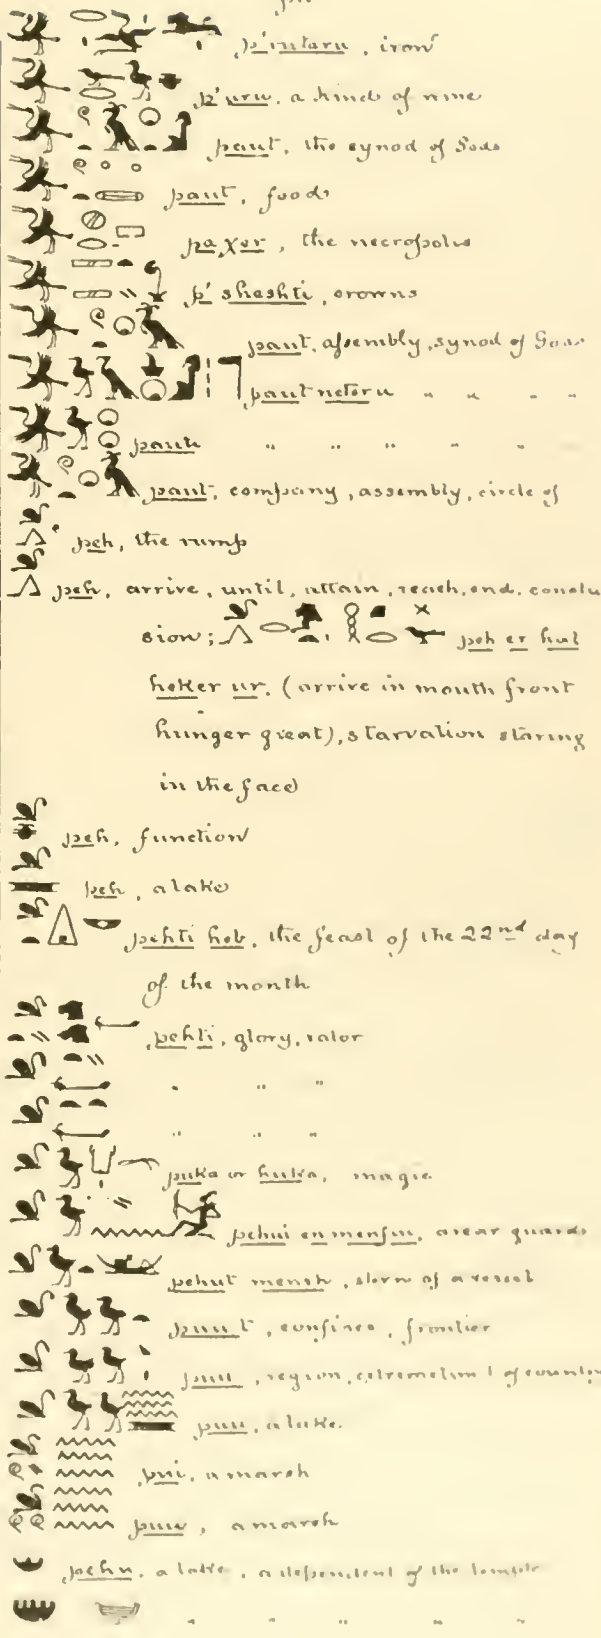 p'nutaru, iron
p'uru, a kind of wine
paut, the synod of Gods
paut, foods
paxer, the necropolis
p' sheshti, crowns
paut, assembly, synod of Gods
paut neteru " " " "
pauti " " " " "
paut, company, assembly, circle of
peh, the rump
peh, arrive, until, attain, reach, end, conclu
sion; peh er hat
heker ur, (arrive in mouth front
hunger great), starvation staring
in the face
peh, function
peh, a lake
pehti heb, the feast of the 22nd day
of the month
pehti, glory, valor
" " "
" " "
puka or huka, magic
pehui en menfiu, a rear guard
pehut mensh, stern of a vessel
puut, confines, frontier
puu, region, extreme limit of country
puu, a lake.
pui, a marsh
puu, a marsh
pehu, a lake, a dependent of the temple
" " " " "